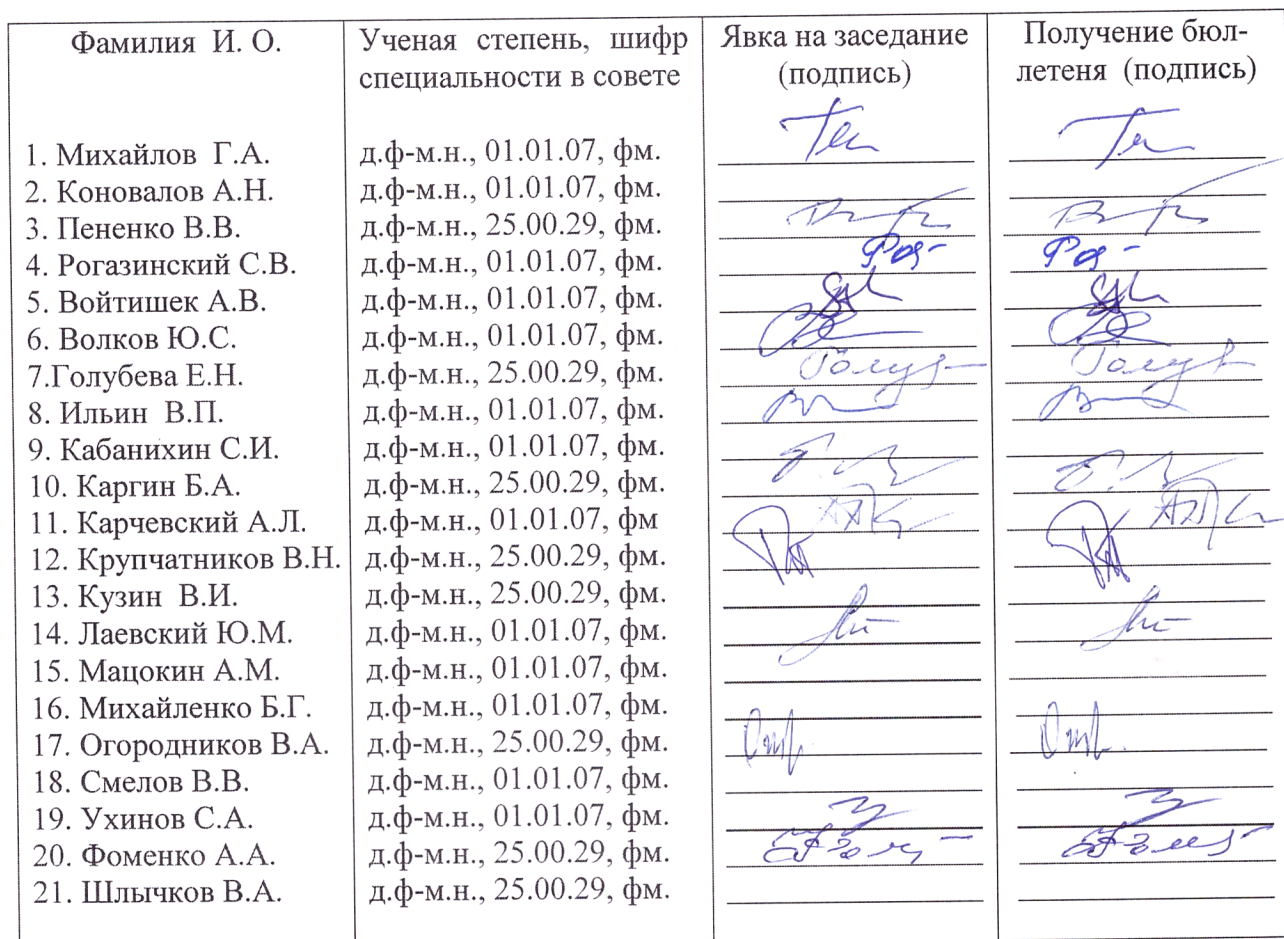 Фамилия И. О.
Ученая степень, шифр
специальности в совете
Явка на заседание
(подпись)
Получение бюл-
летеня (подпись)
1. Михайлов Г.А. д.ф-м.н., 01.01.07, фм.
2. Коновалов А.Н. д.ф-м.н., 01.01.07, фм.
3. Пененко В.В. д.ф-м.н., 25.00.29, фм.
4. Рогазинский С.В. д.ф-м.н., 01.01.07, фм.
5. Войтишек А.В. д.ф-м.н., 01.01.07, фм.
6. Волков Ю.С. д.ф-м.н., 01.01.07, фм.
7.Голубева Е.Н. д.ф-м.н., 25.00.29, фм.
8. Ильин В.П. д.ф-м.н., 01.01.07, фм.
9. Кабанихин С.И. д.ф-м.н., 01.01.07, фм.
10. Каргин Б.А. д.ф-м.н., 25.00.29, фм.
11. Карчевский А.Л. д.ф-м.н., 01.01.07, фм
12. Крупчатников В.Н. д.ф-м.н., 25.00.29, фм.
13. Кузин В.И. д.ф-м.н., 25.00.29, фм.
14. Лаевский Ю.М. д.ф-м.н., 01.01.07, фм.
15. Мацокин А.М. д.ф-м.н., 01.01.07, фм.
16. Михайленко Б.Г. д.ф-м.н., 01.01.07, фм.
17. Огородников В.А. д.ф-м.н., 25.00.29, фм.
18. Смелов В.В. д.ф-м.н., 01.01.07, фм.
19. Ухинов С.А. д.ф-м.н., 01.01.07, фм.
20. Фоменко А.А. д.ф-м.н., 25.00.29, фм.
21. Шлычков В.А. д.ф-м.н., 25.00.29, фм.